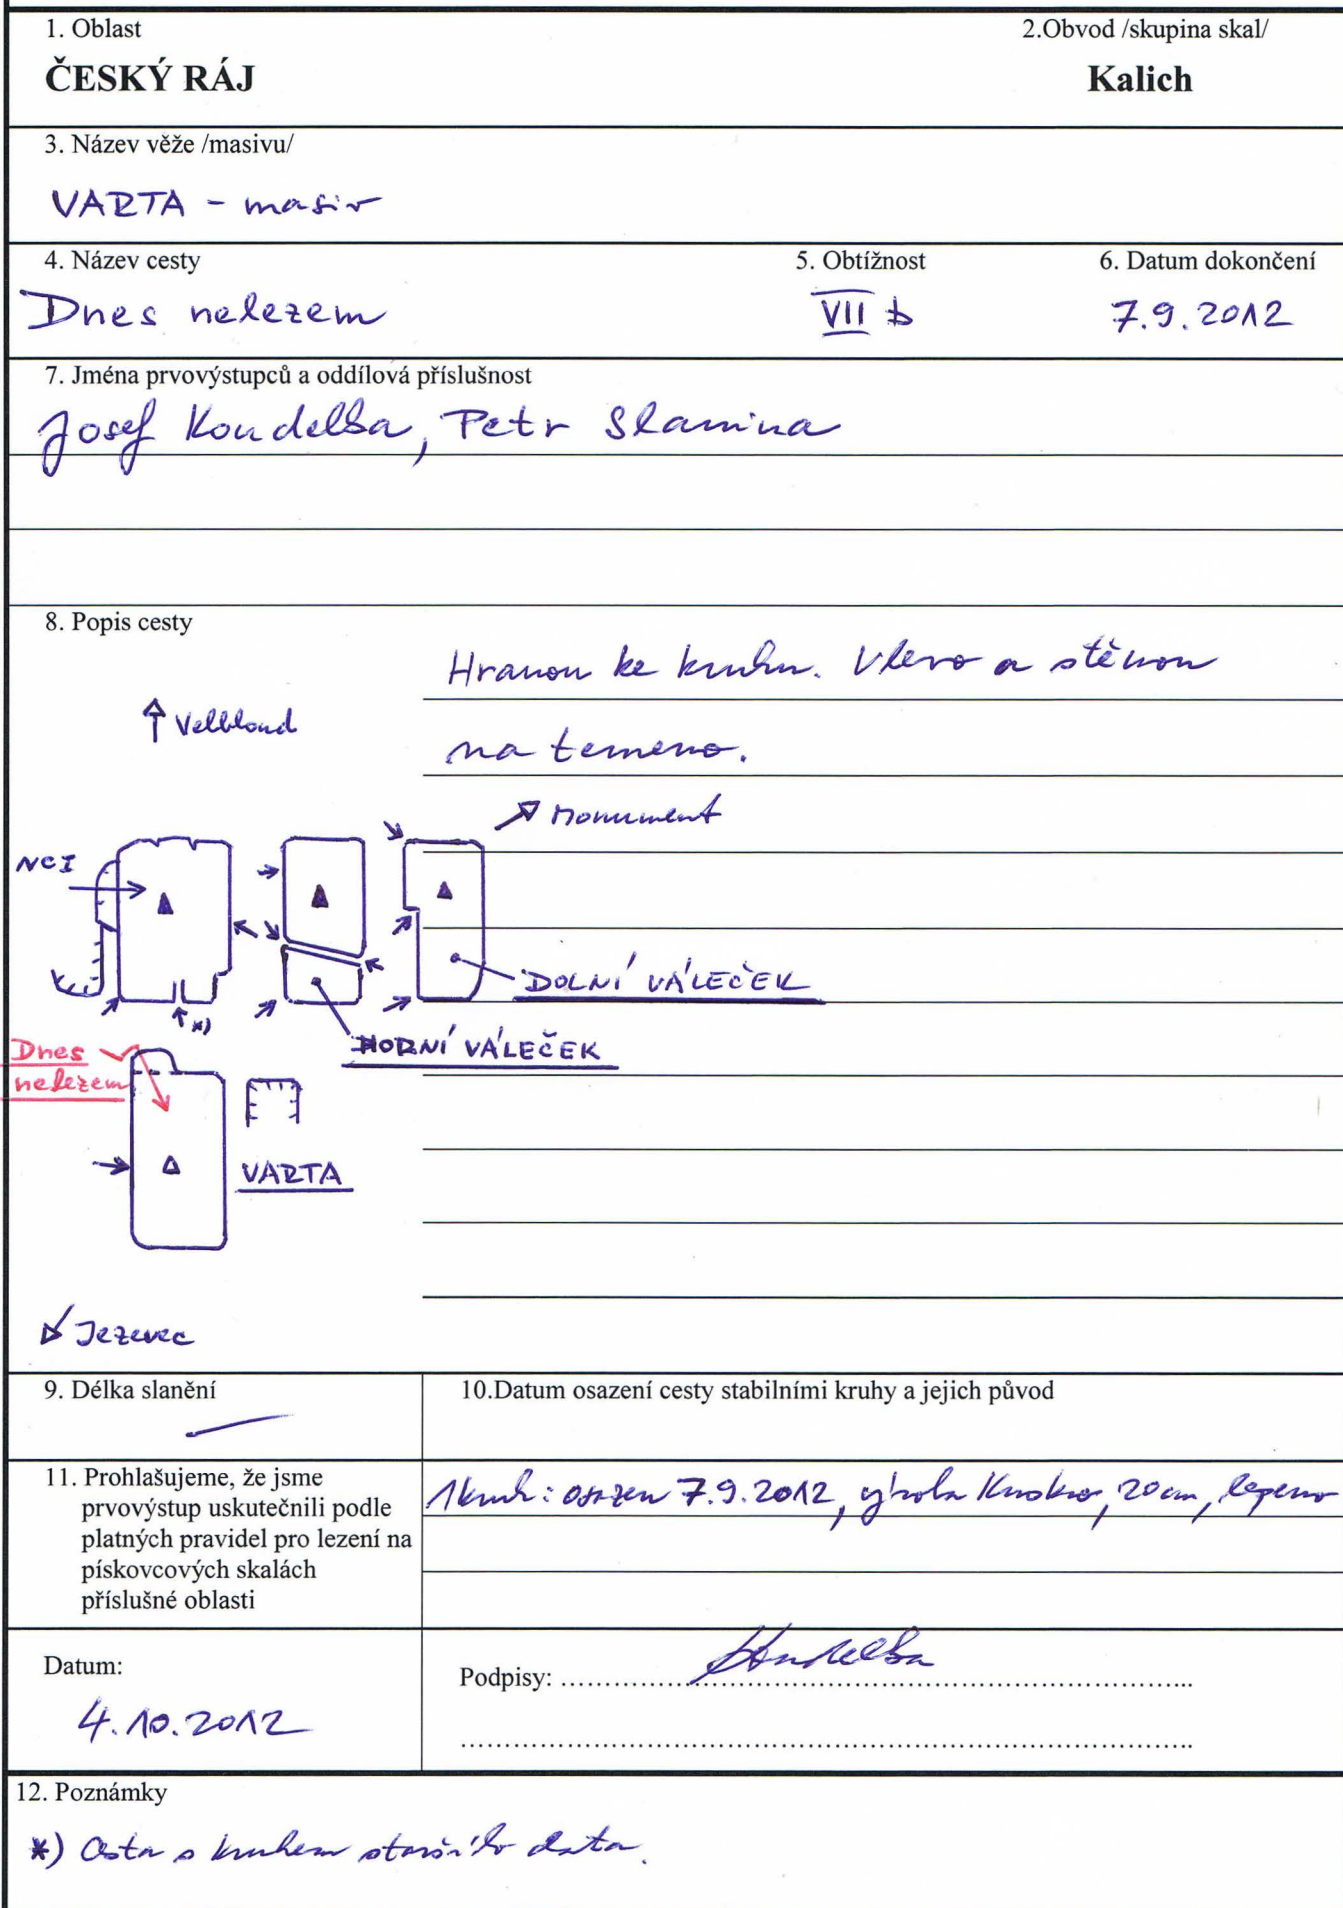 1. Oblast 2.Obvod /skupina skal/
ČESKÝ RÁJ Kalich
3. Název věže /masivu/
VARTA - masiv
4. Název cesty 5. Obtížnost 6. Datum dokončení
Dnes nelezem VII b 7.9.2012
7. Jména prvovýstupců a oddílová příslušnost
Josef Koudelka, Petr Slanina
8. Popis cesty
Hranou ke kruhu. Vlevo a stěnou
Velbloud
na temeno.
Monument
NCI
DOLNÍ VÁLEČEK
*)
HORNÍ VÁLEČEK
Dnes
nelezem
VARTA
Jezevec
9. Délka slanění 10.Datum osazení cesty stabilními kruhy a jejich původ
11. Prohlašujeme, že jsme
prvovýstup uskutečnili podle
platných pravidel pro lezení na
pískovcových skalách
příslušné oblasti
1kruh: osazen 7.9.2012, výroba 20cm, lepeno
Datum:
Podpisy: Koudelka
4.10.2012
12. Poznámky
*) Cesta s kruhem staršího data.